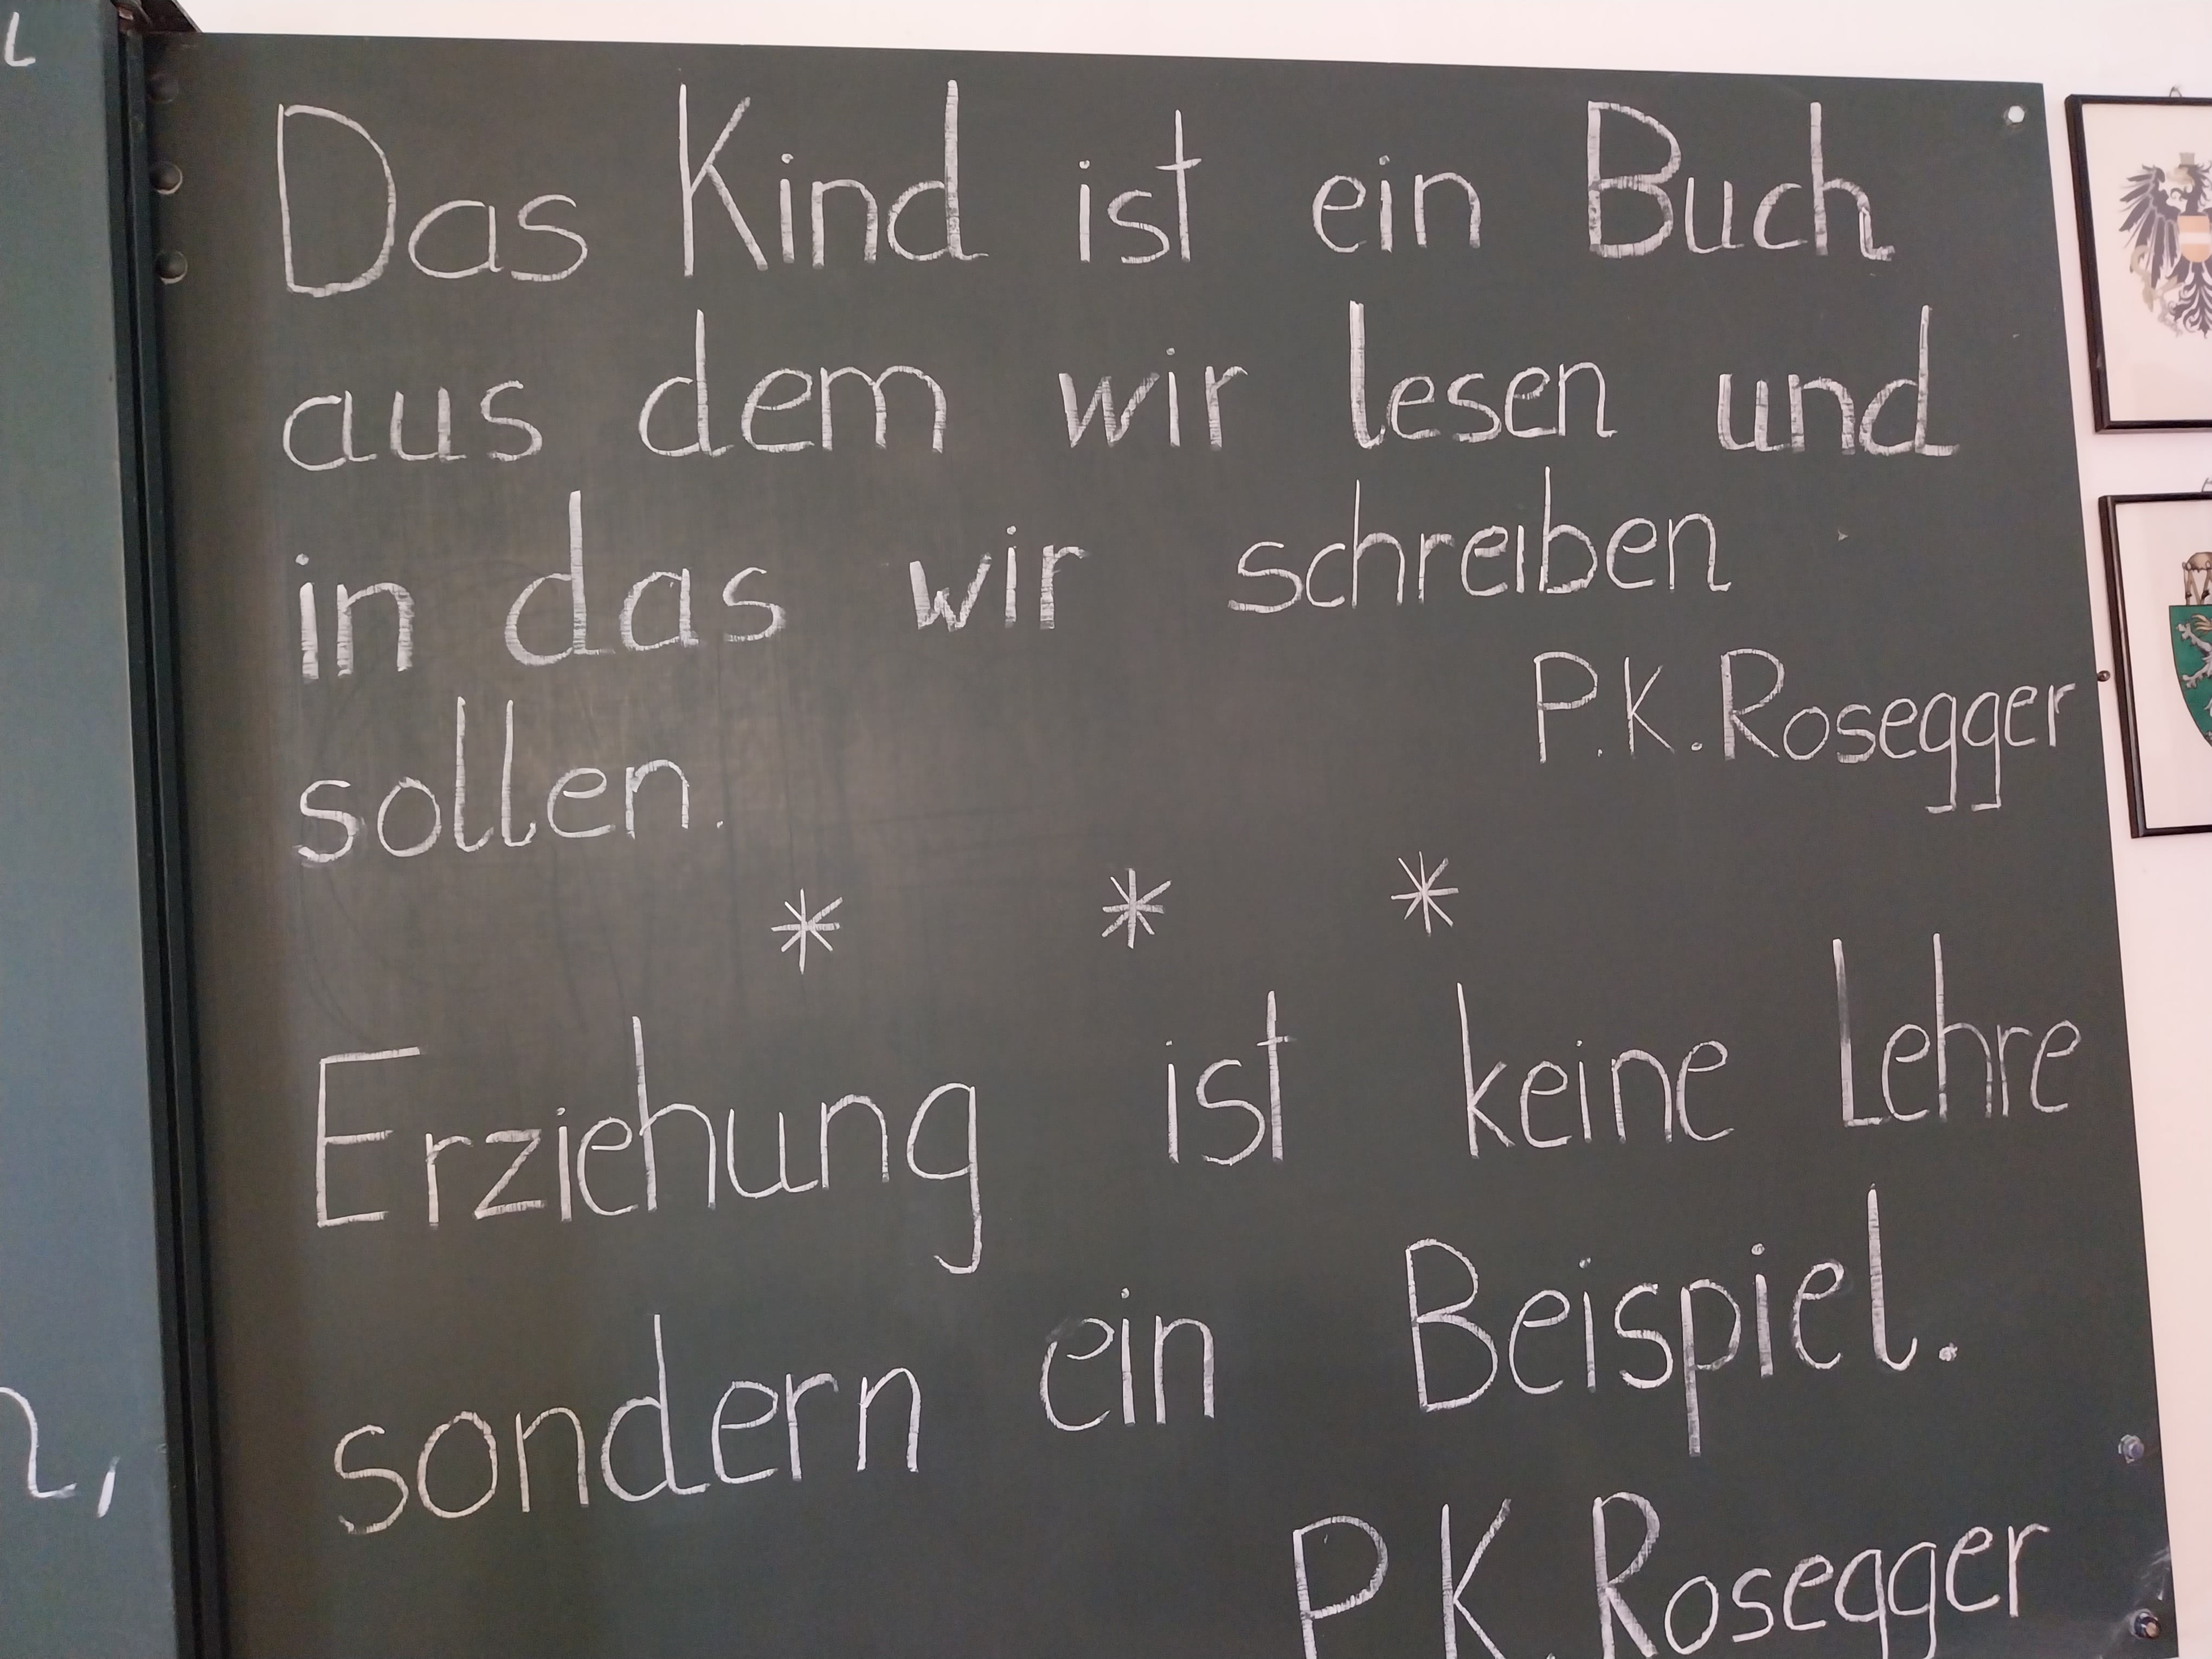 Das Kind ist ein Buch
aus dem wir lesen und
in das wir schreiben
sollen.
P.K.Rosegger
* * *
Erziehung ist keine Lehre
sondern ein Beispiel.
P.K.Rosegger